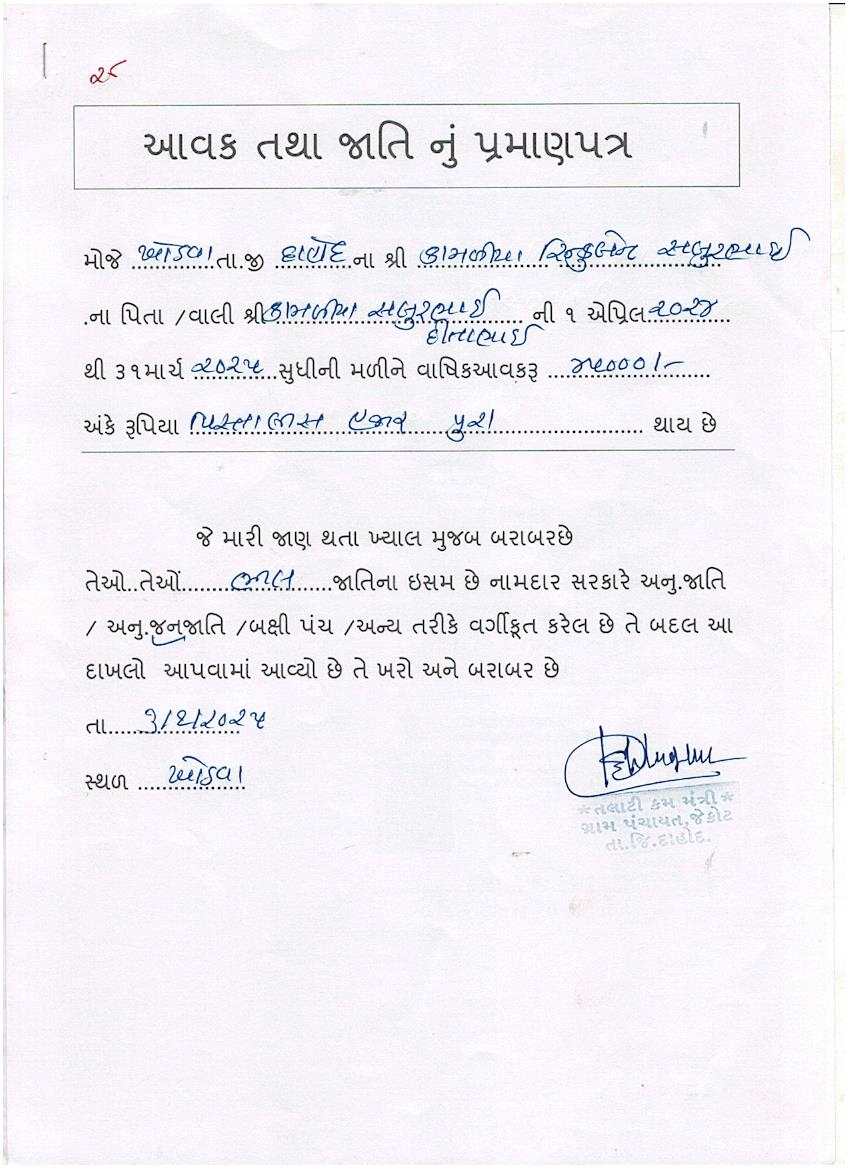 ૨૮
આવક તથા જાતિ નું પ્રમાણપત્ર
મોજે ખોડવા તા.જી દાહોદ ના શ્રી કામળીયા રિન્કુબેન સબુરભાઈ
.ના પિતા /વાલી શ્રી કામળીયા સબુરભાઈ ની ૧ એપ્રિલ ૨૦૨૪
દીતાભાઈ
થી ૩૧માર્ચ ૨૦૨૫ સુધીની મળીને વાષિકઆવકરૂ ૪૫૦૦૦/-
અંકે રૂપિયા પિસ્તાલીસ હજાર પુરા થાય છે
જે મારી જાણ થતા ખ્યાલ મુજબ બરાબરછે
તેઓ..તેઓં........ભીલ......જાતિના ઇસમ છે નામદાર સરકારે અનુ.જાતિ
/ અનુ.જનજાતિ /બક્ષી પંચ /અન્ય તરીકે વર્ગીકૃત કરેલ છે તે બદલ આ
દાખલો આપવામાં આવ્યો છે તે ખરો અને બરાબર છે
તા......૩/૬/૨૦૨૫
સ્થળ ખોડવા
*તલાટી કમ મંત્રી*
ગ્રામ પંચાયત,જેકોટ
તા.જિ.દાહોદ.